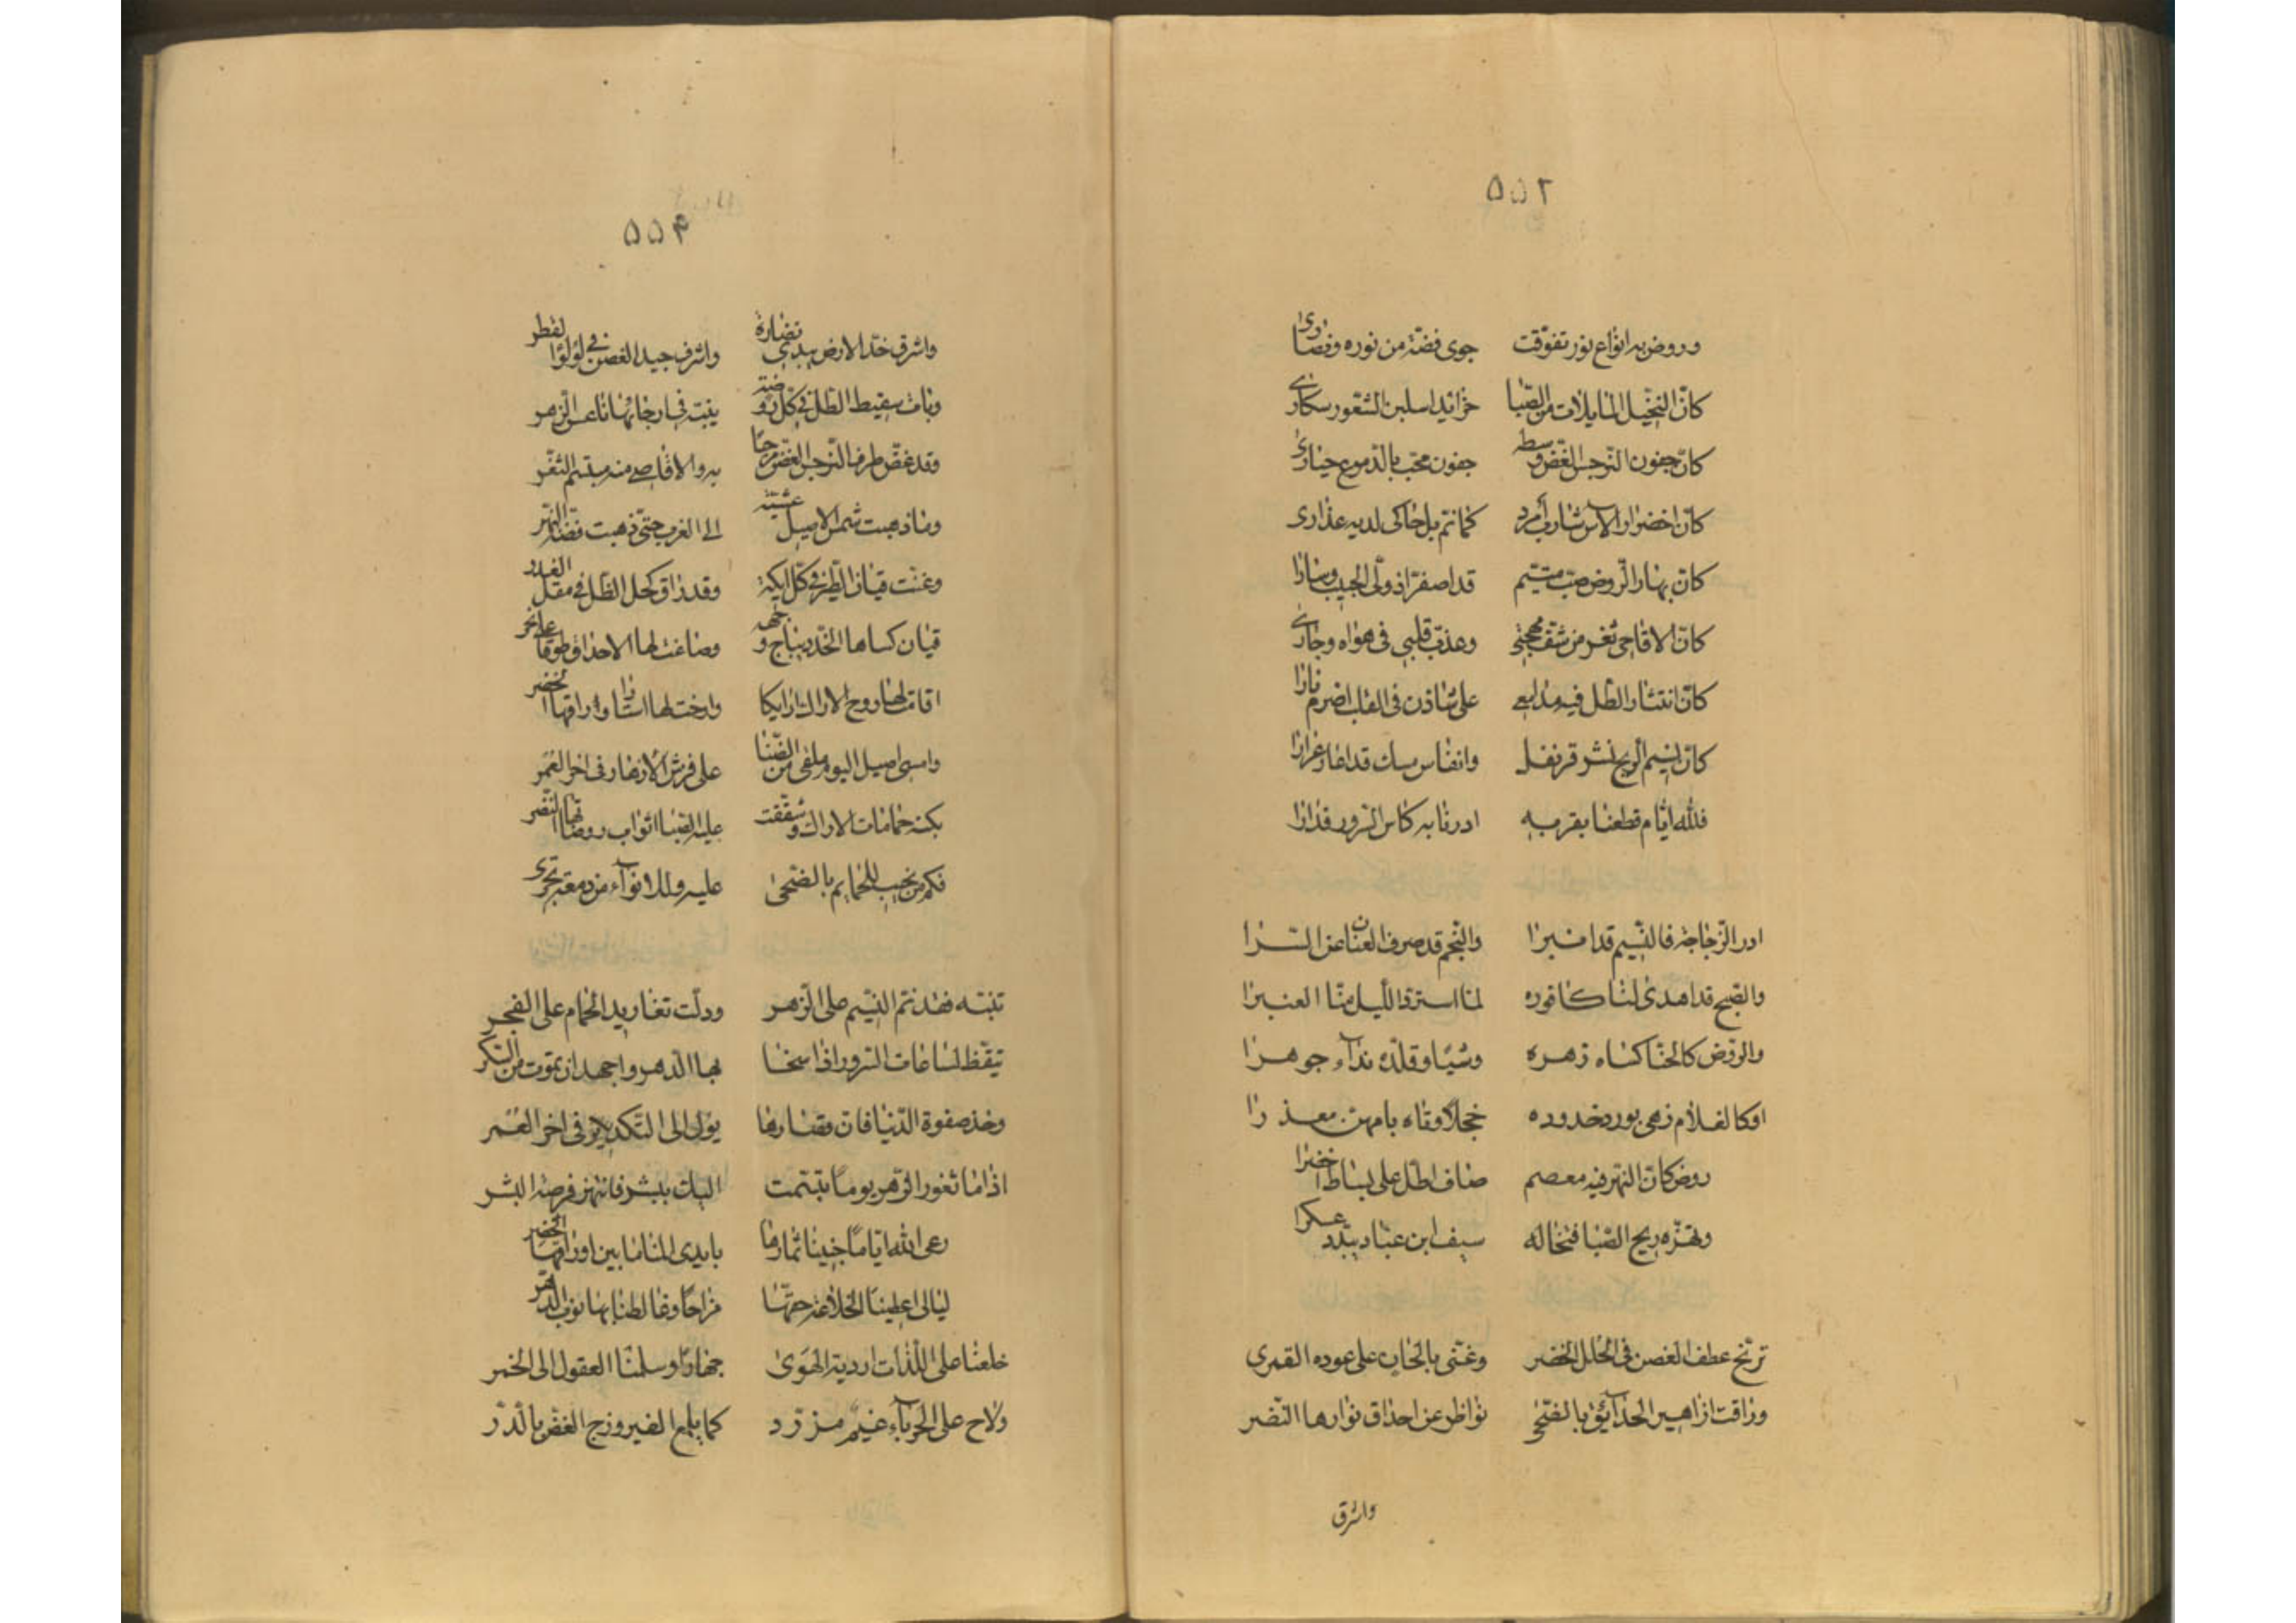 ٥٥٢
وروض به انواع نور تفوقت حوى فضة من نوره ونضارى
كان النخيل المايلات من الصبا خرائد اسلبن الشعور سكارى
كان جفون النرجس الغض وسطه جفون محب بالدموع حيارى
كان اخضرار الآس شارب أمرد كما نم بل حاكى لديه عذارى
كان بهار الروض صب متيم قد اصفر اذ ولى الحبيب وسارا
كان الاقاحي ثغر من شف مهجتي وعذب قلبي في هواه وجارى
كان انتثار الطل فيه مدامعي على شادن في القلب اضرم نارا
كان نسيم الريح نشر قرنفل وانفاس مسك قد اعار غرارا
فلله ايام قطعنا بقربه ادرنا به كاس السرور فدارا
ادر الزجاجة فالنسيم قد انبرا والنجم قد صرف العنان عن السرا
والصبح قد اهدى لنا كافوره لما استرد الليل منا العنبرا
والروض كالحنا كساه زهره وشيا وقلده نداء جوهرا
او كالغلام زهى بورد خدوده خجلا وتاه بآسهن معذرا
روض كان النهر فيه معصم صاف اطل على بساط اخضرا
وتهزه ريح الصبا فتخاله سيف ابن عباد يبدد عسكرا
ترنح عطف الغصن في الحلل الخضر وغنى بالحان على عوده القمرى
وراقت ازاهير الحدائق بالضحى نواظر عن احداق نوارها النضر
واشرق
٥٥۴
واشرق خد الارض يبدي نضارة واشرف جيد الغصن في لؤلؤ القطر
وبات سقيط الطل في كل روضة ينبت في ارجائها ناعس الزهر
وقد غض طرف النرجس الغض مرحبا به والاقاصي منه مبتسم الثغر
وما ذهبت شمس الاصيل عشية الى الغرب حتى ذهبت فضة النهر
وغنت قيان الطير في كل ايكة وقد راق كحل الظل في مقل الغدر
قيان كساها الخد ديباج وجهه وصاغت لها الاحداق طوقا على نحر
اقامت لها روح الاراك ارايكا وارخت لها استار اوراقها الخضر
وامسى اصيل اليوم ملقى من الضنا على فرش الازهار في اخر العمر
بكته حمامات الاراك وشققت عليه الصبا اثواب روضاتها النضر
فكم من نحيب للحمايم بالضحى عليه وللانواء من دمعة تجرى
تنبه فقد نم النسيم على الزهر ودلت تغاريد الحمام على الفجر
تيقظ لساعات السرور اذا سخا بها الدهر واجهد ان تموت من السكر
وخذ صفوة الدنيا فان قصارها يؤل الى التكدير في اخر العمر
اذا ما ثغور الزهر يوما تبسمت اليك ببشر فانتهز فرصة البشر
رعى الله اياما جنينا ثمارها بايدى المنا ما بين اوراقها الخضر
ليالي اعطينا الخلاعة حقها مزاحا وغالطنا بها نوب الدهر
خلعنا على اللذات اردية الهوى جهارا وسلمنا العقول الى الخمر
ولاح على الحرباء غيم مزرد كما يلمع الفيروزج الغض بالدر